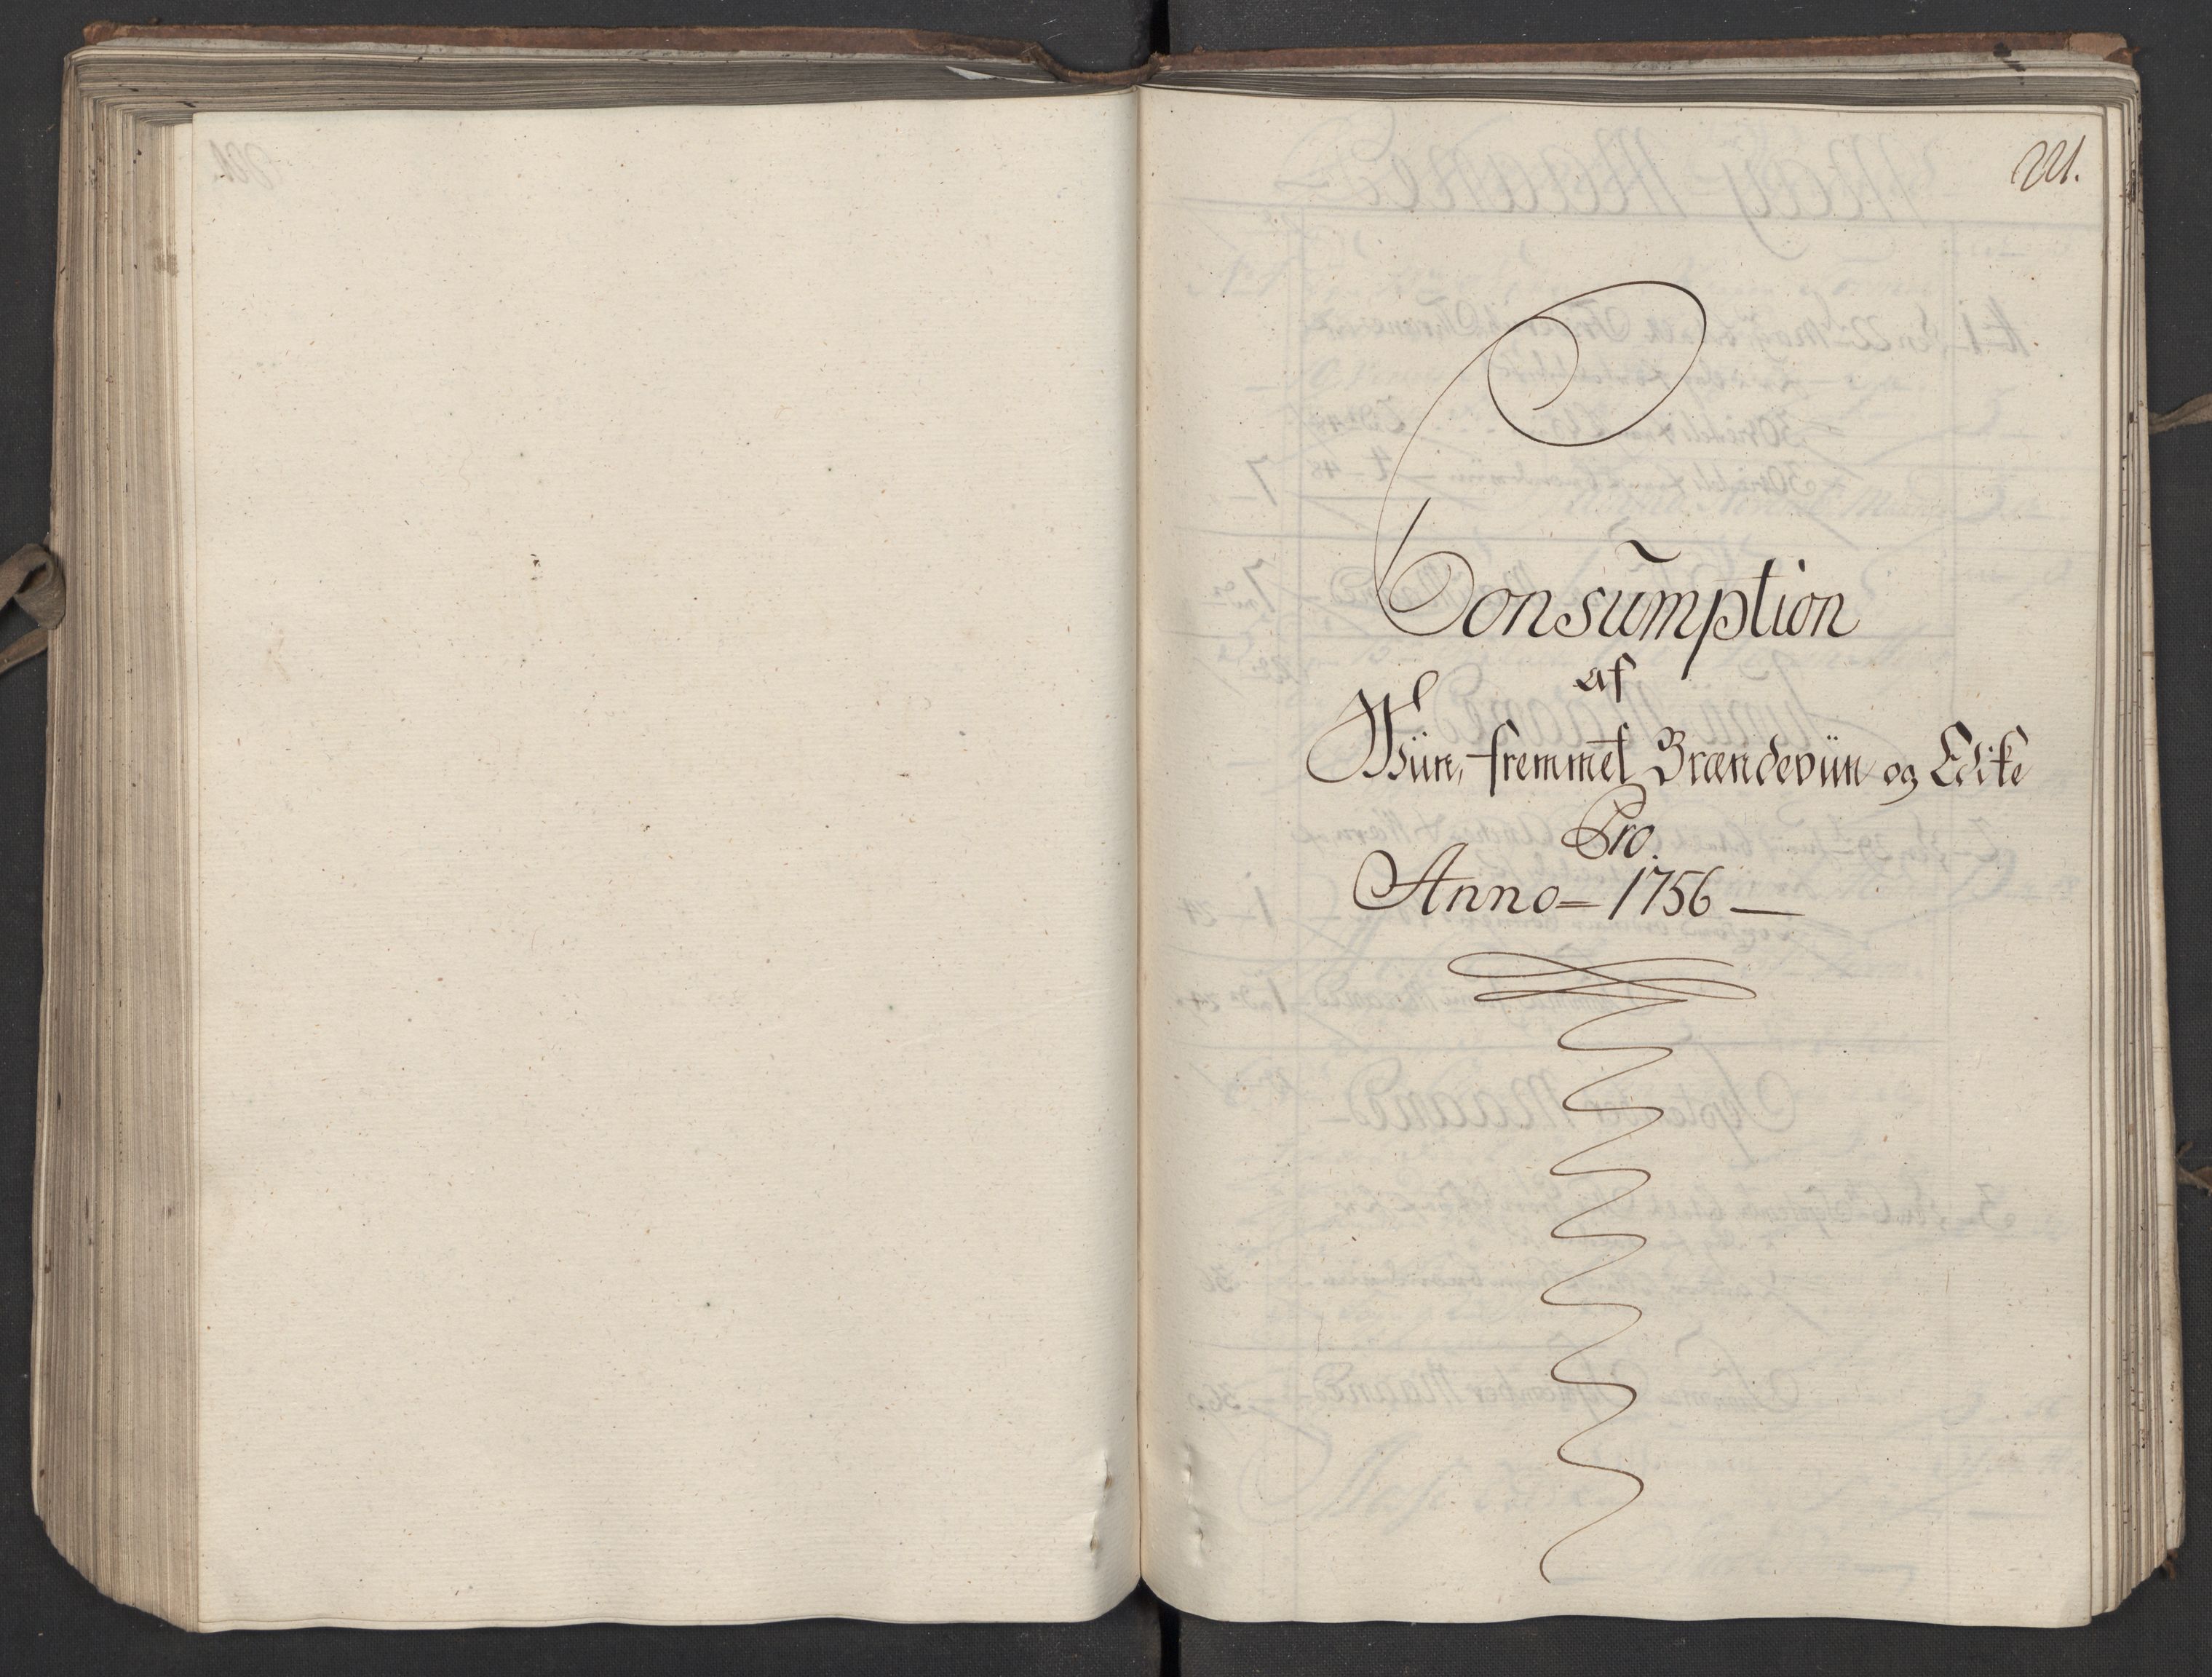 221.
Consumption
af
Wiin, fremmet Brændeviin og Edike
Pro.
Anno = 1756 —